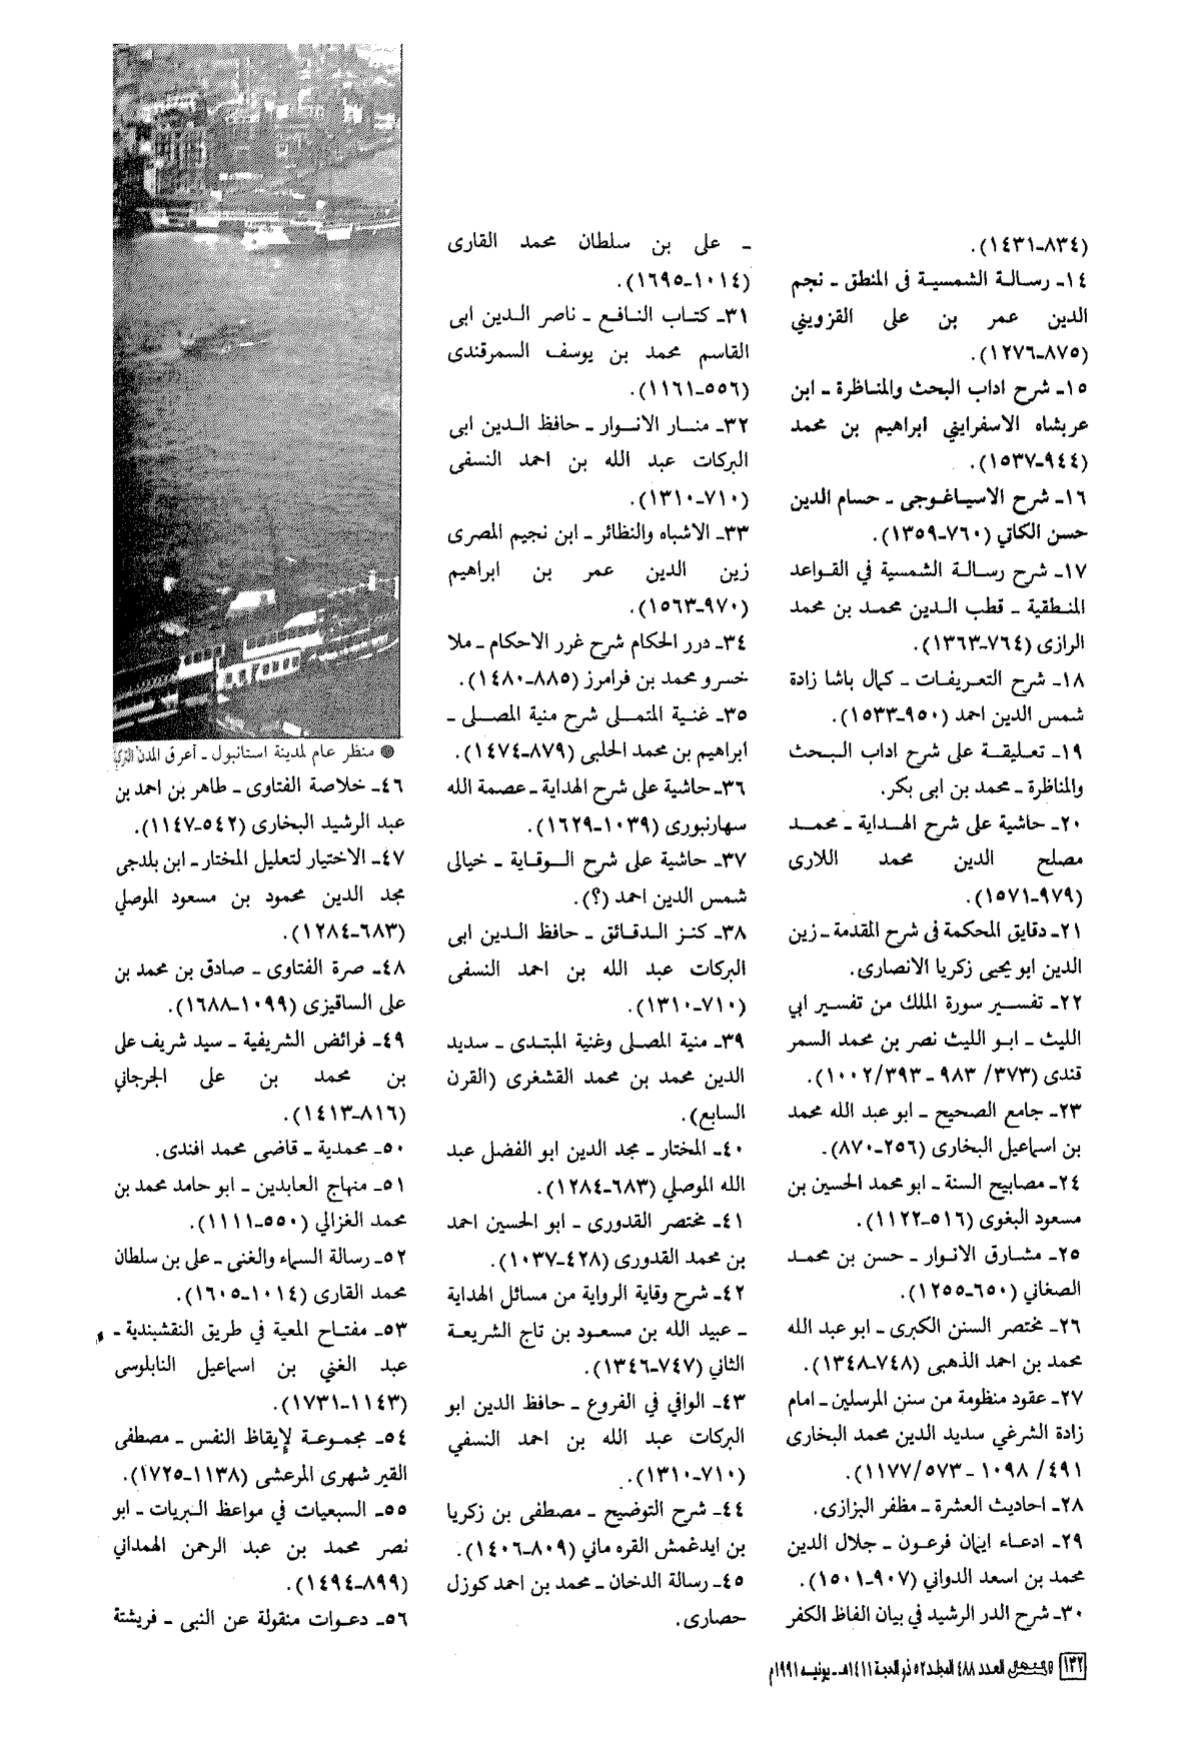 (٨٣٤ـ١٤٣١).
١٤ـ رسـالـة الشمسيـة فى المنطق ـ نجم
الدين عمر بن على القزويني
(٨٧٥ـ١٢٧٦).
١٥ـ شرح اداب البحث والمناظرة ـ ابن
عربشاه الاسفرايني ابراهيم بن محمد
(٩٤٤ـ١٥٣٧).
١٦ـ شرح الاسيـاغـوجى ـ حسام الدين
حسن الكاتي (٧٦٠ـ١٣٥٩).
١٧ـ شرح رسـالـة الشمسية في القـواعد
المنـطقية ـ قطب الـدين محمـد بن محمد
الرازى (٧٦٤ـ١٣٦٣).
١٨ـ شرح التعريفـات ـ كمال باشا زادة
شمس الدين احمد (٩٥٠ـ١٥٣٣).
١٩ـ تعـليقـة على شرح اداب الـبـحث
والمناظرة ـ محمد بن ابى بكر.
٢٠ـ حاشية على شرح الهـدايـة ـ محمـد
مصلح الدين محمد اللارى
(٩٧٩ـ١٥٧١).
٢١ـ دقايق المحكمة فى شرح المقدمة ـ زين
الدين ابو يحيى زكريا الانصارى.
٢٢ـ تفسـير سورة الملك من تفسـير ابي
الليث ـ ابـو الليث نصر بن محمد السمر
قندى (٣٧٣/ ٩٨٣ ـ ٣٩٣/١٠٠٢).
٢٣ـ جامع الصحيح ـ ابو عبد الله محمد
بن اسماعيل البخارى (٢٥٦ـ٨٧٠).
٢٤ـ مصابيح السنة ـ ابو محمد الحسين بن
مسعود البغوى (٥١٦ـ١١٢٢).
٢٥ـ مشـارق الانـوار ـ حسن بن محمـد
الصغاني (٦٥٠ـ١٢٥٥).
٢٦ـ مختصر السنن الكبرى ـ ابو عبد الله
محمد بن احمد الذهبى (٧٤٨ـ١٣٤٨).
٢٧ـ عقود منظومة من سنن المرسلين ـ امام
زادة الشرغي سديد الدين محمد البخارى
٤٩١/ ١٠٩٨ ـ ٥٧٣/١١٧٧).
٢٨ـ احاديث العشرة ـ مظفر البزازى.
٢٩ـ ادعـاء ايمان فرعـون ـ جلال الدين
محمد بن اسعد الدواني (٩٠٧ـ١٥٠١).
٣٠ـ شرح الدر الرشيد في بيان الفاظ الكفر
ـ على بن سلطان محمد القارى
(١٠١٤ـ١٦٩٥).
٣١ـ كتـاب النـافـع ـ ناصر الـدين ابى
القاسم محمد بن يوسف السمرقندى
(٥٥٦ـ١١٦١).
٣٢ـ منـار الانـوار ـ حافظ الـدين ابى
البركات عبد الله بن احمد النسفى
(٧١٠ـ١٣١٠).
٣٣ـ الاشباه والنظائر ـ ابن نجيم المصرى
زين الدين عمر بن ابراهيم
(٩٧٠ـ١٥٦٣).
٣٤ـ درر الحكام شرح غرر الاحكام ـ ملا
خسرو محمد بن فرامرز (٨٨٥ـ١٤٨٠).
٣٥ـ غنـية المتمـلى شرح منية المصـلى ـ
ابراهيم بن محمد الحلبى (٨٧٩ـ١٤٧٤).
٣٦ـ حاشية على شرح الهداية ـ عصمة الله
سهارنبورى (١٠٣٩ـ١٦٢٩).
٣٧ـ حاشية على شرح الـوقـاية ـ خيالى
شمس الدين احمد (؟).
٣٨ـ كنـز الـدقـائق ـ حافظ الـدين ابى
البركات عبد الله بن احمد النسفى
(٧١٠ـ١٣١٠).
٣٩ـ منية المصلى وغنية المبتـدى ـ سديد
الدين محمد بن محمد القشغرى (القرن
السابع).
٤٠ـ المختار ـ مجد الدين ابو الفضل عبد
الله الموصلي (٦٨٣ـ١٢٨٤).
٤١ـ مختصر القدورى ـ ابو الحسين احمد
بن محمد القدورى (٤٢٨ـ١٠٣٧).
٤٢ـ شرح وقاية الرواية من مسائل الهداية
ـ عبيد الله بن مسعـود بن تاج الشريعـة
الثاني (٧٤٧ـ١٣٤٦).
٤٣ـ الوافي في الفروع ـ حافظ الدين ابو
البركات عبد الله بن احمد النسفي
(٧١٠ـ١٣١٠).
٤٤ـ شرح التوضيح ـ مصطفى بن زكريا
بن ايدغمش القره ماني (٨٠٩ـ١٤٠٦).
٤٥ـ رسالة الدخان ـ محمد بن احمد كوزل
حصارى.
● منظر عام لمدينة استانبول ـ أعرق المدن التركية
٤٦ـ خلاصة الفتاوى ـ طاهر بن احمد بن
عبد الرشيد البخارى (٥٤٢ـ١١٤٧).
٤٧ـ الاختيار لتعليل المختار ـ ابن بلدجى
مجد الدين محمود بن مسعود الموصلي
(٦٨٣ـ١٢٨٤).
٤٨ـ صرة الفتاوى ـ صادق بن محمد بن
على الساقيزى (١٠٩٩ـ١٦٨٨).
٤٩ـ فرائض الشريفية ـ سيد شريف على
بن محمد بن على الجرجاني
(٨١٦ـ١٤١٣).
٥٠ـ محمدية ـ قاضى محمد افندى.
٥١ـ منهاج العابدين ـ ابو حامد محمد بن
محمد الغزالي (٥٥٠ـ١١١١).
٥٢ـ رسالة السماء والغنى ـ على بن سلطان
محمد القارى (١٠١٤ـ١٦٠٥).
٥٣ـ مفتـاح المعية في طريق النقشبندية ـ
عبد الغني بن اسماعيل النابلوسى
(١١٤٣ـ١٧٣١).
٥٤ـ مجمـوعـة لإيقاظ النفس ـ مصطفى
القير شهرى المرعشى (١١٣٨ـ١٧٢٥).
٥٥ـ السبعيات في مواعظ الـبريات ـ ابو
نصر محمد بن عبد الرحمن الهمداني
(٨٩٩ـ١٤٩٤).
٥٦ـ دعـوات منقولة عن النبى ـ فريشتة
١٣٢ المنهل العدد ٤٨٨ المجلد ٥٢ ذو الحجة ١٤١١هـ ـ يونيه ١٩٩١م